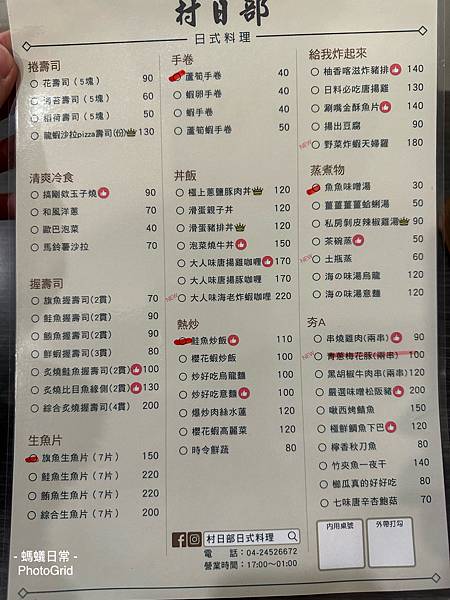 村日部
日式料理
捲壽司
花壽司(5塊) 90
海苔壽司(5塊) 60
稻荷壽司(5塊) 50
龍蝦沙拉pizza壽司(份) 130
清爽冷食
搞剛欸玉子燒 90
和風洋蔥 70
歐巴泡菜 40
馬鈴薯沙拉 40
握壽司
旗魚握壽司(2貫) 70
鮭魚握壽司(2貫) 90
鮪魚握壽司(2貫) 90
鮮蝦握壽司(3貫) 80
炙燒鮭魚握壽司(2貫) 100
炙燒比目魚緣側(2貫) 130
綜合炙燒握壽司(4貫) 200
生魚片
旗魚生魚片(7片) 150
鮭魚生魚片(7片) 220
鮪魚生魚片(7片) 220
綜合生魚片(7片) 200
手卷
蘆筍手卷 40
蝦卵手卷 40
蝦手卷 40
蘆筍蝦手卷 50
丼飯
極上蔥鹽豚肉丼 120
滑蛋親子丼 120
滑蛋豬排丼 120
泡菜燒牛丼 150
大人味唐揚雞咖喱 170
大人味唐揚豚咖喱 170
NEW 大人味海老炸蝦咖喱 220
熱炒
鮭魚炒飯 110
櫻花蝦炒飯 100
炒好吃烏龍麵 100
炒好吃意麵 100
爆炒肉絲水蓮 100
櫻花蝦高麗菜 120
時令鮮蔬 80
給我炸起來
柚香喀滋炸豬排 140
日料必吃唐揚雞 130
涮嘴金酥魚片 140
揚出豆腐 90
NEW 野菜炸蝦天婦羅 180
蒸煮物
魚魚味噌湯 30
薑薑薑薑蛤蜊湯 50
私房剝皮辣椒雞湯 90
茶碗蒸 50
NEW 土瓶蒸 60
海の味噌烏龍 120
海の味噌意麵 120
夯A
串燒雞肉(兩串) 90
NEW 青蔥梅花豚(兩串) 100
黑胡椒牛肉串(兩串) 120
嚴選味噌松阪豬 200
啾西烤鯖魚 150
極鮮鯛魚下巴 100
檸香秋刀魚 80
竹夾魚一夜干 140
櫛瓜真的好好吃 80
七味唐辛杏鮑菇 70
村日部日式料理
電 話:04-24526672
營業時間:17:00～01:00
內用桌號
外帶打勾
- 螞蟻日常 -
PhotoGrid